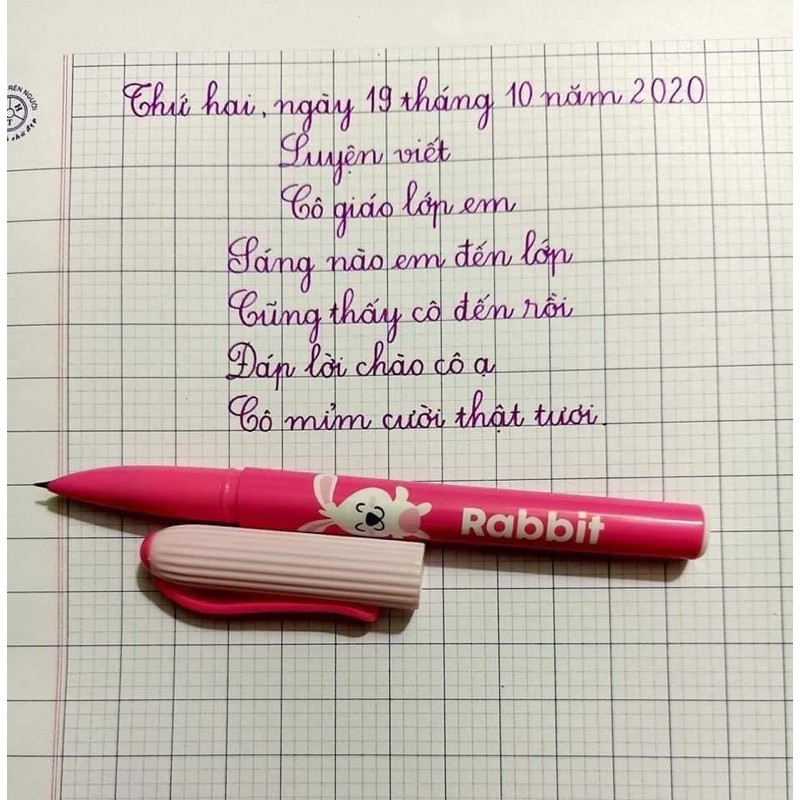 Thứ hai, ngày 19 tháng 10 năm 2020
Luyện viết
Cô giáo lớp em
Sáng nào em đến lớp
Cũng thấy cô đến rồi
Đáp lời chào cô ạ
Cô mỉm cười thật tươi.
Rabbit